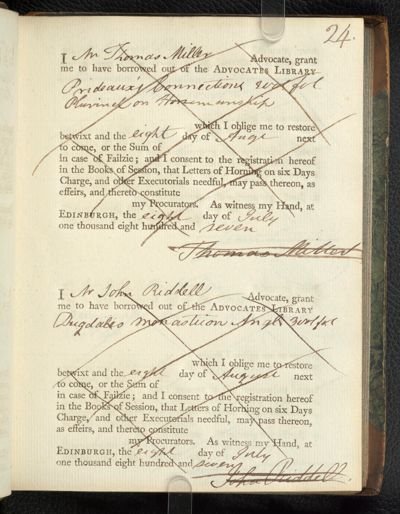 24.
I Mr Thomas Miller Advocate, grant
me to have borrowed out of the ADVOCATES LIBRARY
Prideaux's Connections 2 vol fol
Pluvinel on Horsemanship
which I oblige me to restore
betwixt and the eight day of Augt next
to come, or the Sum of
in case of Failzie; and I consent to the registration hereof
in the Books of Session, that Letters of Horning on six Days
Charge, and other Executorials needful, may pass thereon, as
effeirs, and thereto constitute
my Procurators. As witness my Hand, at
EDINBURGH, the eight day of July
one thousand eight hundred and seven
Thomas Miller
I Mr John Riddell Advocate, grant
me to have borrowed out of the ADVOCATES LIBRARY
Dugdales monasticon Angl 3 vol fol
which I oblige me to restore
betwixt and the eight day of August next
to come, or the Sum of
in case of Failzie; and I consent to the registration hereof
in the Books of Session, that Letters of Horning on six Days
Charge, and other Executorials needful, may pass thereon,
as effeirs, and thereto constitute
my Procurators. As witness my Hand, at
EDINBURGH, the eight day of July
one thousand eight hundred and seven
John Riddell